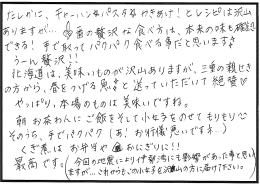 たしかに、チャーハンやパスタやかきあげ！とレシピは沢山
ありますが… 一番の贅沢な食べ方は、本来の味も確認
できる！手で取ってパクパク食べる事だと思います♪
うーん贅沢!!
北海道は、美味いものが沢山ありますが、三重の親せき
の方から、春をつげる魚と送っていただいて絶賛♡
やっぱり、本場のものは美味いですね。
朝お茶わんにご飯をそして小女子をのせてもりもり
そのうち、手でパクパク（あ！お行儀悪いですネ…）
くぎ煮はお弁当やおにぎりに!!
最高です。（今回の地震により漁にも影響があった事と思い
ますが…これからもこの小女子を沢山の方に届けて下さい。）